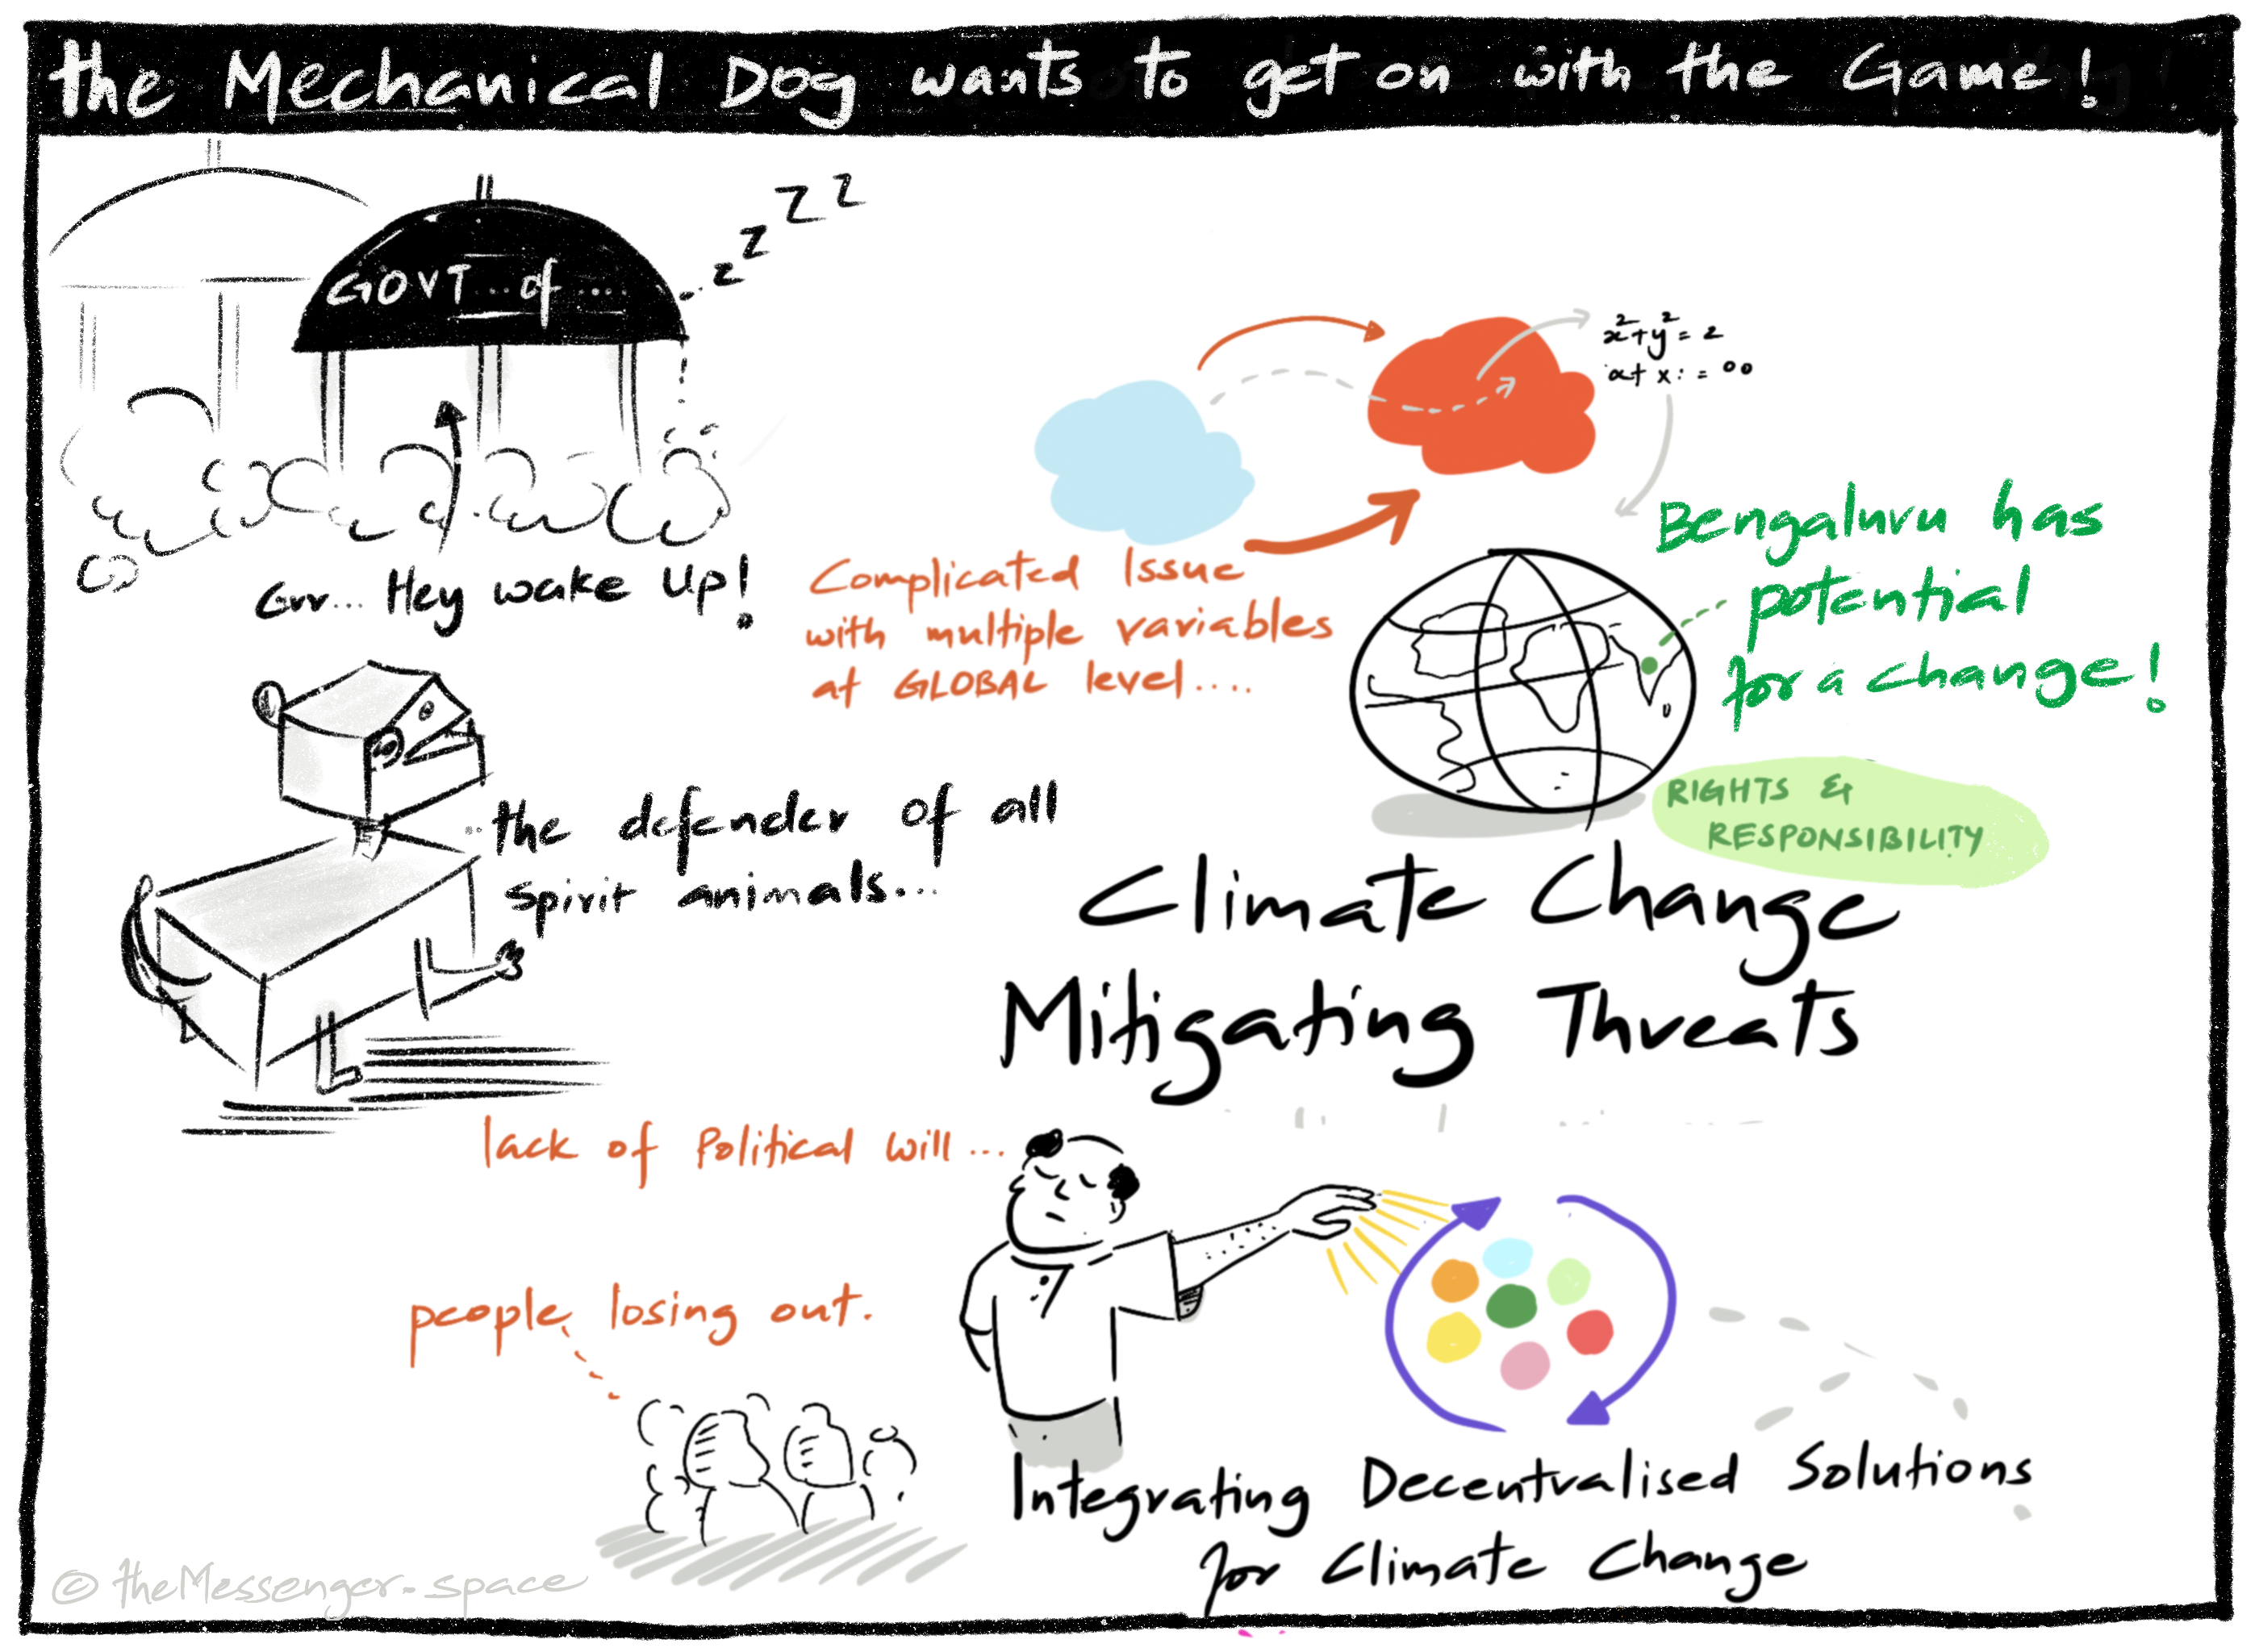 the Mechanical Dog wants to get on with the Game!
GOVT... of ....
z z z z
Grr... Hey wake up!
x²+y² = 2
Complicated Issue
with multiple variables
at GLOBAL level....
Bengaluru has
potential
for a change!
RIGHTS &
RESPONSIBILITY
..the defender of all
spirit animals...
Climate Change
Mitigating Threats
lack of Political will ...
people losing out.
Integrating Decentralised Solutions
for Climate Change
© theMessenger.space